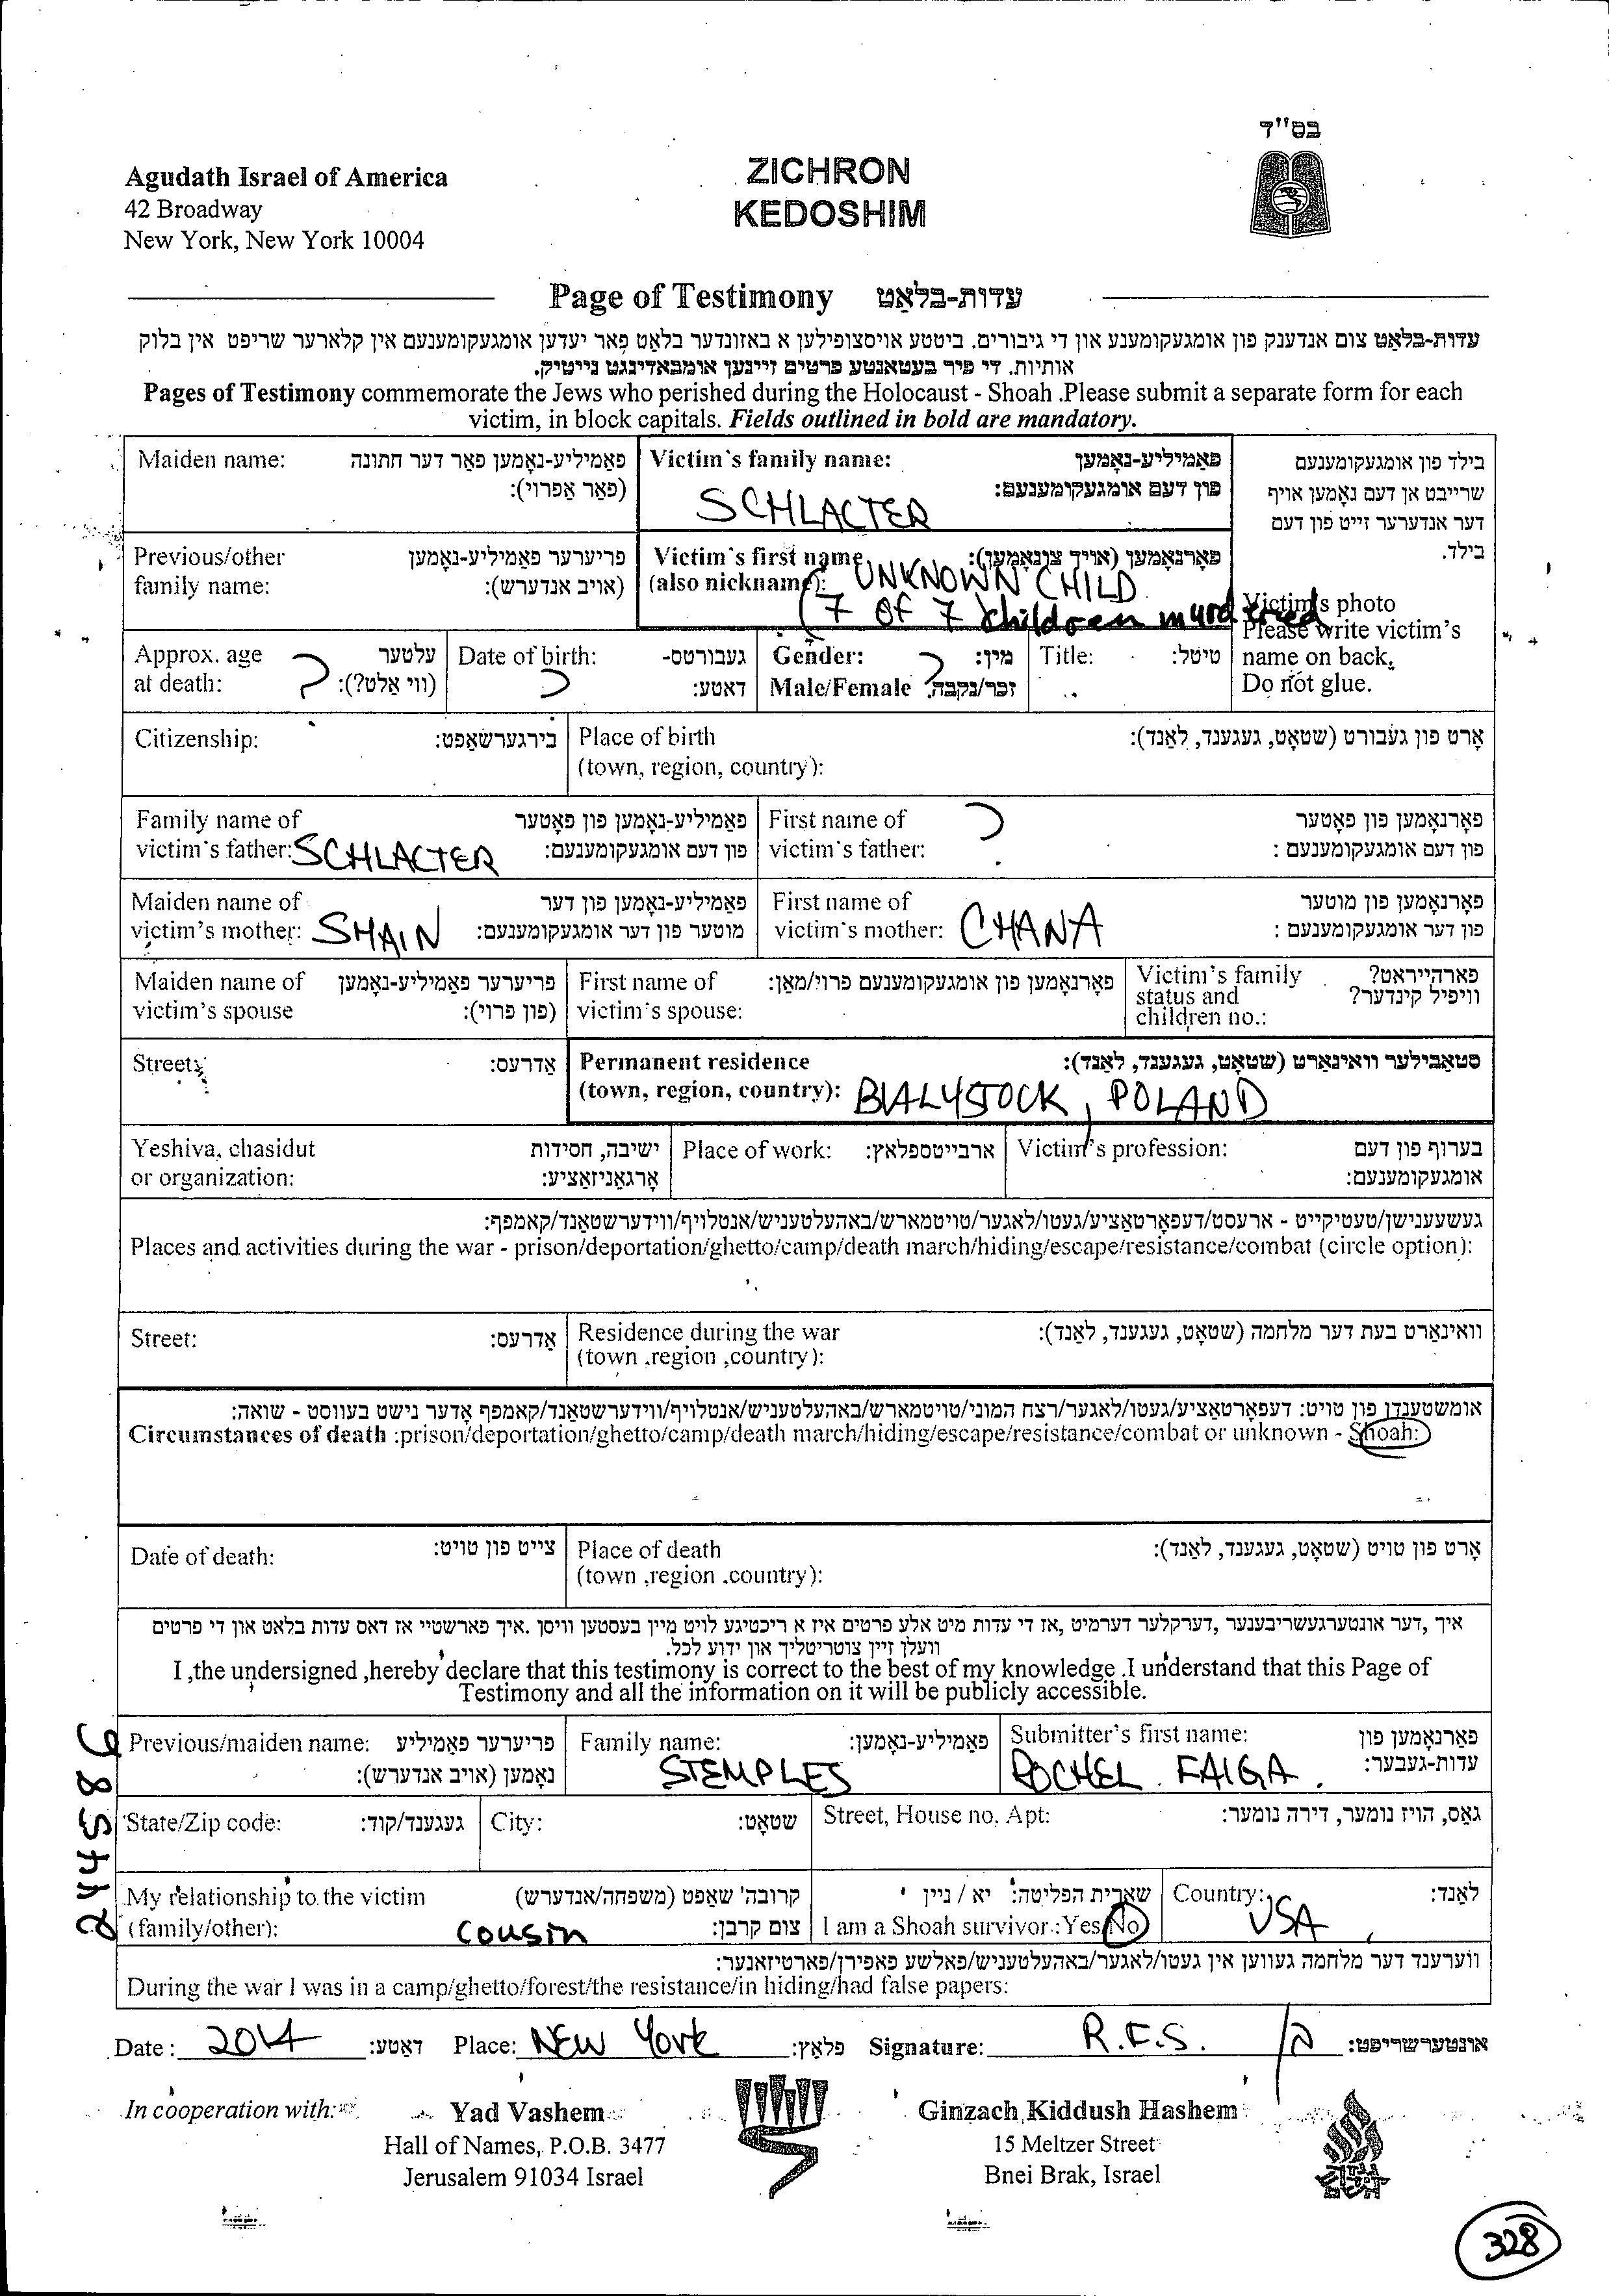 בס"ד
Agudath Israel of America
42 Broadway
New York, New York 10004
ZICHRON
KEDOSHIM
Page of Testimony עדות-בלאַט
עדות-בלאַט צום אנדענק פון אומגעקומענע און די גיבורים. ביטטע אויסצופילען א באזונדער בלאַט פאר יעדען אומגעקומענעם אין קלארער שריפט אין בלוק
אותיות. די פיר בעטאנטע פרטים זיינען אומבאדינגט נייטיק.
Pages of Testimony commemorate the Jews who perished during the Holocaust - Shoah .Please submit a separate form for each
victim, in block capitals. Fields outlined in bold are mandatory.
Maiden name: פאַמיליע-נאָמען פאַר דער חתונה
(פאַר אַפרוי):
Victim's family name: פאַמיליע-נאָמען
פון דעם אומגעקומענעם:
SCHLACTER
בילד פון אומגעקומענעם
שרייבט אן דעם נאָמען אויף
דער אנדערער זייט פון דעם
בילד.
Victim's photo
Please write victim's
name on back.
Do not glue.
Previous/other פריערער פאַמיליע-נאָמען
family name: (אויב אנדערש):
Victim's first name פאָרנאָמען (אויך צונאָמען):
(also nickname): UNKNOWN CHILD
(7 of 7 children murdered
Approx. age עלטער
at death: ? (ווי אַלט?):
Date of birth: געבורטס-
? דאַטע:
Gender: מין:
Male/Female ? זכר/נקבה
Title: טיטל:
Citizenship: בירגערשאַפט:
Place of birth אָרט פון געבורט (שטאָט, געגענד, לאַנד):
(town, region, country):
Family name of פאַמיליע-נאָמען פון פאָטער
victim's father: SCHLACTER פון דעם אומגעקומענעם:
First name of ? פאָרנאָמען פון פאָטער
victim's father: פון דעם אומגעקומענעם :
Maiden name of פאַמיליע-נאָמען פון דער
victim's mother: SHAIN מוטער פון דער אומגעקומענעם:
First name of פאָרנאָמען פון מוטער
victim's mother: CHANA פון דער אומגעקומענעם :
Maiden name of פריערער פאַמיליע-נאָמען
victim's spouse (פון פרוי):
First name of פאָרנאָמען פון אומגעקומענעם פרוי/מאַן:
victim's spouse:
Victim's family פארהייראט?
status and וויפיל קינדער?
children no.:
Street: אַדרעס:
Permanent residence סטאַבילער וואוינאָרט (שטאָט, געגענד, לאַנד):
(town, region, country): BIALYSTOCK, POLAND
Yeshiva, chasidut ישיבה, חסידות
or organization: אָרגאַניזאַציע:
Place of work: ארבייטספלאץ:
Victim's profession: בערוף פון דעם
אומגעקומענעם:
געשעענישן/טעטיקייט - ארעסט/דעפאָרטאַציע/געטו/לאגער/טויטמארש/באהעלטעניש/אנטלויף/ווידערשטאַנד/קאמפף:
Places and activities during the war - prison/deportation/ghetto/camp/death march/hiding/escape/resistance/combat (circle option):
Street: אַדרעס:
Residence during the war וואוינאָרט בעת דער מלחמה (שטאָט, געגענד, לאַנד):
(town ,region ,country):
אומשטענדן פון טויט: דעפאָרטאַציע/געטו/לאַגער/רצח המוני/טויטמארש/באהעלטעניש/אנטלויף/ווידערשטאַנד/קאמפף אָדער נישט בעווסט - שואה:
Circumstances of death :prison/deportation/ghetto/camp/death march/hiding/escape/resistance/combat or unknown - Shoah:
Date of death: צייט פון טויט:
Place of death אָרט פון טויט (שטאָט, געגענד, לאַנד):
(town ,region ,country):
איך ,דער אונטערגעשריבענער ,דערקלער דערמיט ,אז די עדות מיט אלע פרטים איז א ריכטיגע לויט מיין בעסטען וויסן .איך פארשטיי אז דאס עדות בלאט און די פרטים
וועלן זיין צוטריטליך און ידוע לכל.
I ,the undersigned ,hereby declare that this testimony is correct to the best of my knowledge .I understand that this Page of
Testimony and all the information on it will be publicly accessible.
Previous/maiden name: פריערער פאַמיליע
נאָמען (אויב אנדערש):
Family name: פאַמיליע-נאָמען:
STEMPLES
Submitter's first name: פאָרנאָמען פון
עדות-געבער:
ROCHEL FAIGA
State/Zip code: געגענד/קוד:
City: שטאָט:
Street, House no, Apt: גאַס, הויז נומער, דירה נומער:
My relationship to the victim קרובה' שאפט (משפחה/אנדערש)
(family/other): cousin צום קרבן:
שארית הפליטה: יא / ניין
I am a Shoah survivor.:Yes/No
Country: לאַנד:
USA
ווערענד דער מלחמה געווען אין געטו/לאגער/באהעלטעניש/פאלשע פאפירן/פארטיזאנער:
During the war I was in a camp/ghetto/forest/the resistance/in hiding/had false papers:
Date : 2014 דאַטע: Place: NEW York פלאַץ: Signature: R.F.S. אונטערשריפט:
In cooperation with:
Yad Vashem
Hall of Names, P.O.B. 3477
Jerusalem 91034 Israel
Ginzach Kiddush Hashem
15 Meltzer Street
Bnei Brak, Israel
328